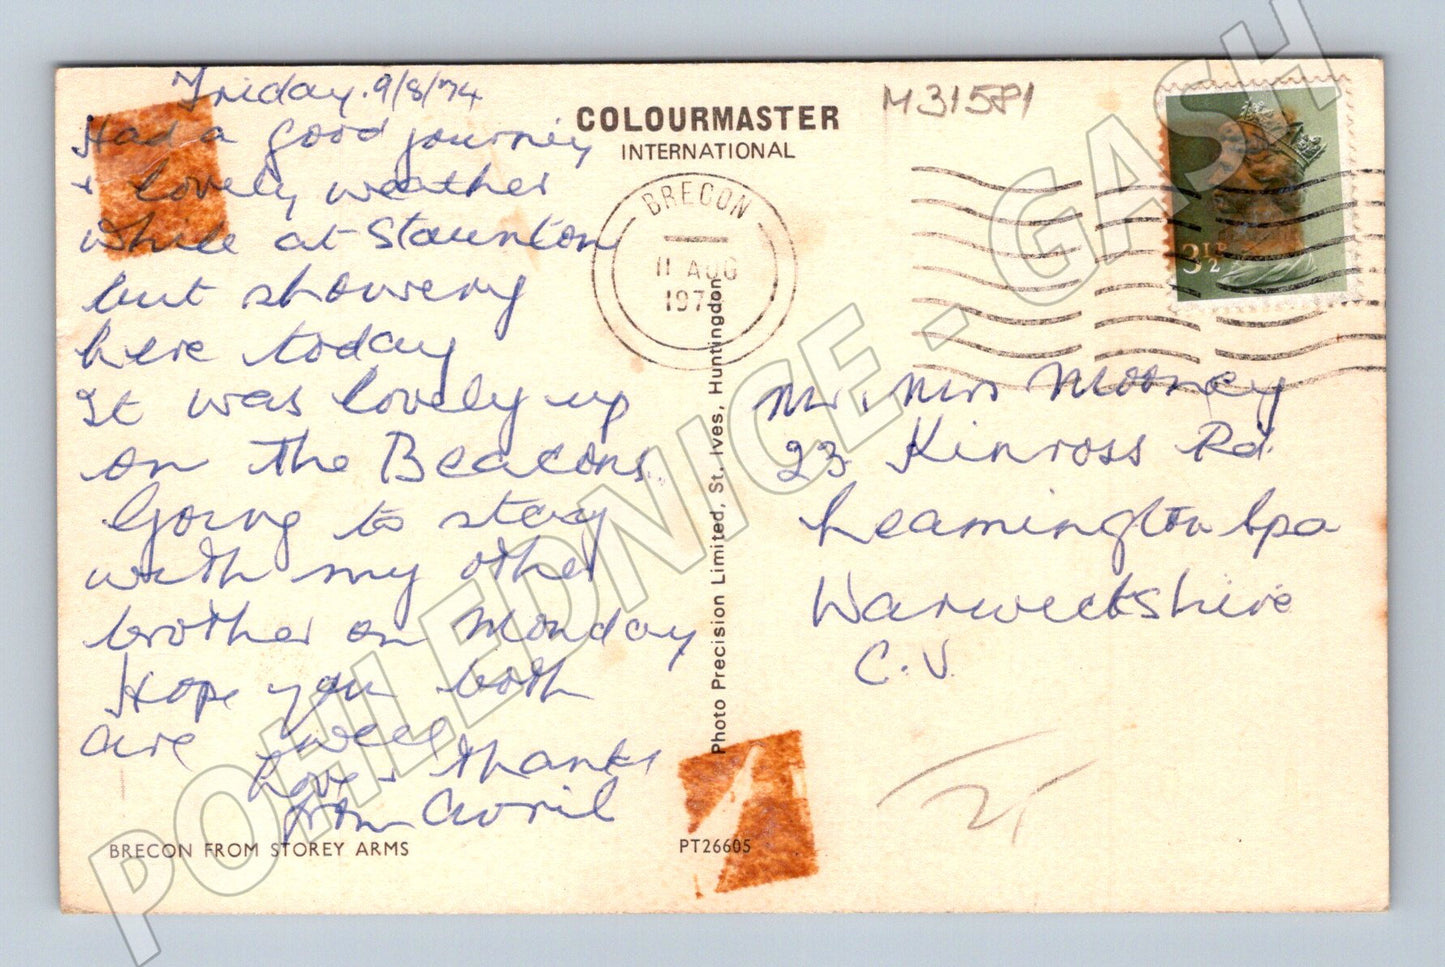 Friday. 9/8/74
Had a good journey
& lovely weather
while at Staunton
but showery
here today
It was lovely up
on the Beacons.
Going to stay
with my other
brother on Monday
Hope you both
are well
Love & thanks
from Avril
BRECON FROM STOREY ARMS
COLOURMASTER
INTERNATIONAL
M31581
BRECON
11 AUG
197
3½P
Photo Precision Limited, St. Ives, Huntingdon
PT26605
Mr. Mrs Mooney
23 Kinross Rd.
Leamington Spa
Warwickshire
C.V.
POHLEDNICE - GASH